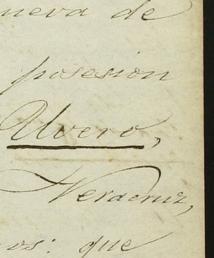 nueva de
posesion
Uvero,
Veracruz,
os: que